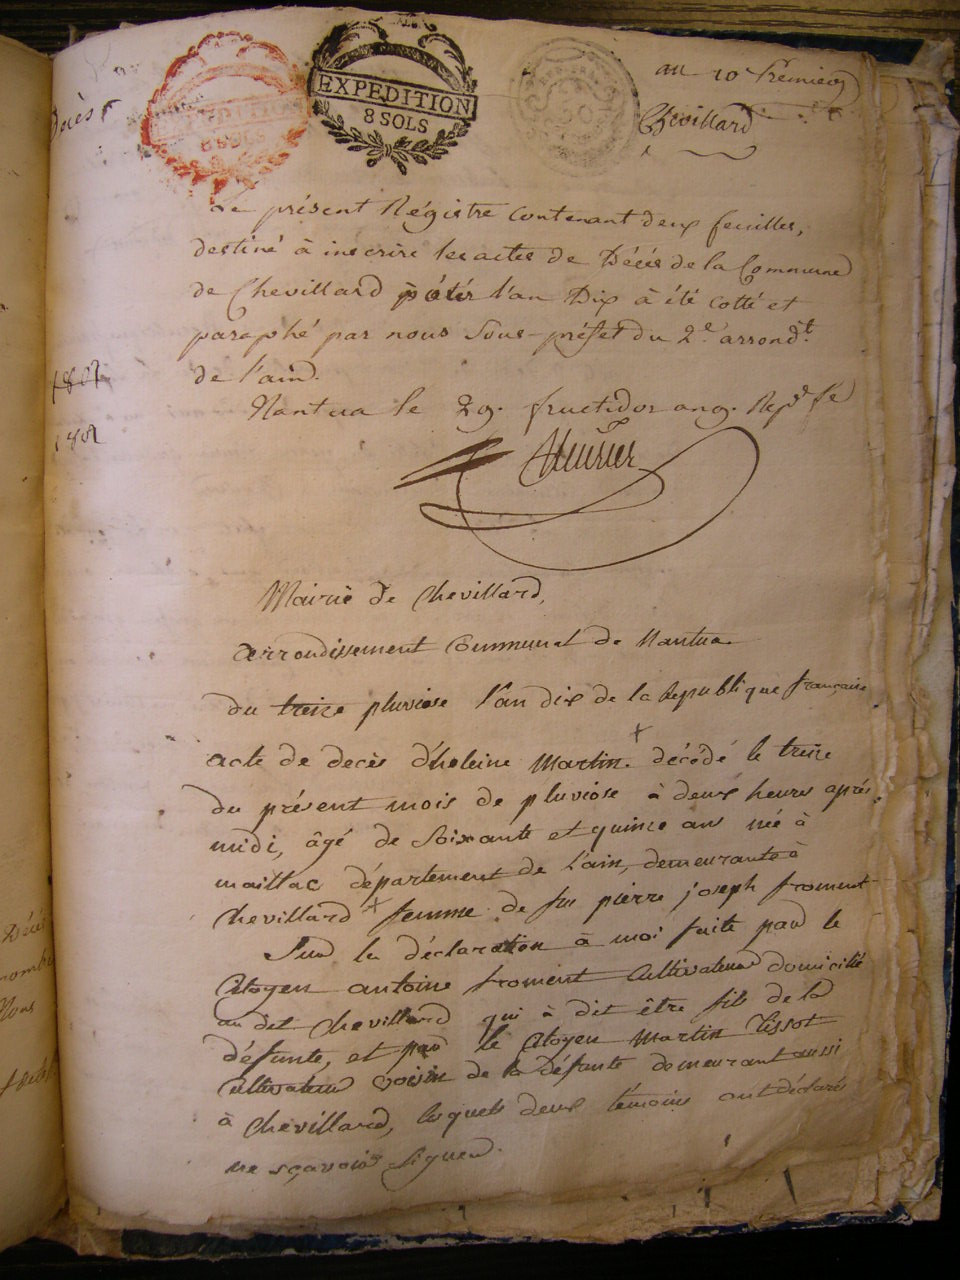 Décès
EXPEDITION
8 SOLS
EXPEDITION
8 SOLS
an 10
Chevillard
Le présent Régistre contenant deux feuilles,
destiné à inscrire les actes de Décès de la Commune
de Chevillard l'an Dix à été cotté et
paraphé par nous Sous-préfet du 2e. arrondt.
de l'ain.
Nantua le 29. fructidor an 9.
1802
1801
Mairie de Chevillard,
arrondissement Communal de Nantua
du treize pluviose l'an dix de la Republique française
acte de decès d'heleine Martin + décédé le treize
du présent mois de pluviose à deux heures après
midi, âgé de Soixante et quinze ans née à
maillac département de l'ain, demeurante à
Chevillard + femme de feu pierre joseph froment
Sur la déclaration à moi faite par le
Citoyen antoine froment Cultivateur domicilié
au dit Chevillard qui à dit être fils de la
défunte, et par le Citoyen Martin Tissot
Cultivateur voisin de la défunte demeurant aussi
à Chevillard, lesquels deux témoins ont déclaré
ne sçavoir signer.